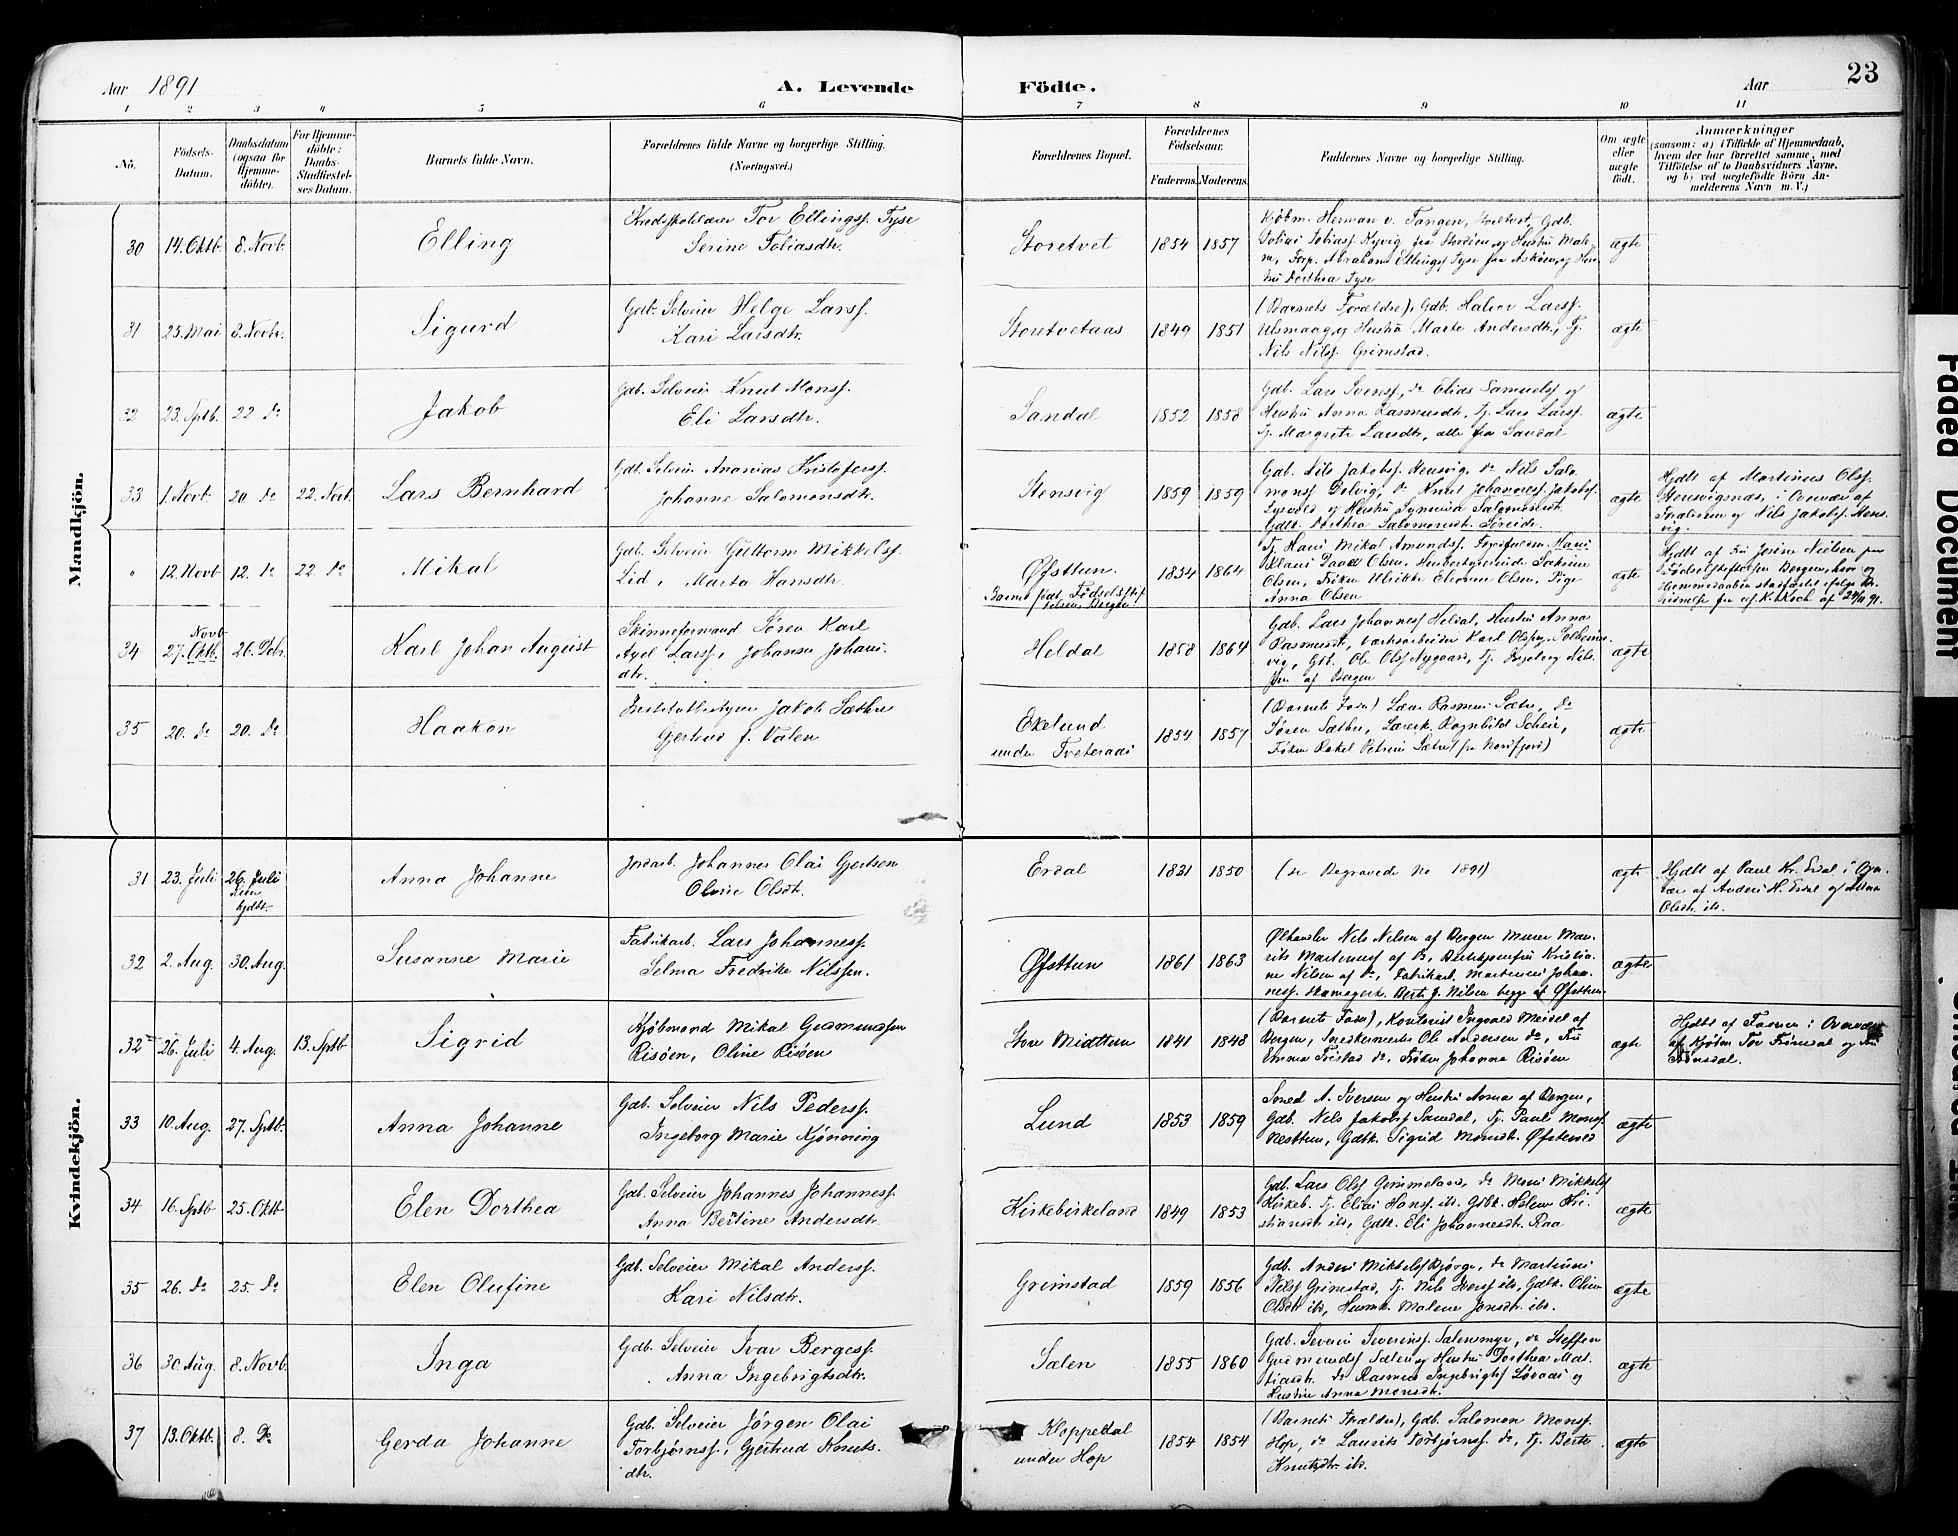 Aar 1891
A. Levende
Födte.
Aar
23
1 2 3 4 5 6 7 8 9 10 11
No.
Födsels-
Datum.
Daabsdatum
(ogsaa for
Hjemme-
döbte).
For Hjemme-
döbte:
Daabs-
Stadfæstel-
ses Datum.
Barnets fulde Navn.
Forældrenes fulde Navne og borgerlige Stilling.
(Næringsvei.)
Forældrenes Bopæl.
Forældrenes
Födselsaar.
Faderens. Moderens.
Faddernes Navne og borgerlige Stilling.
Om ægte
eller
uægte
født.
Anmærkninger
(saasom: a) i Tilfælde af Hjemmedaab,
hvem der har forrettet samme, med
Tilföielse af to Daabsvidners Navne.
og b) ved uægtefödte Börn An-
melderens Navn m. V.)
Mandkjön.
30 14. Oktb. 8. Novb. Elling
Tor Ellingss. Tyse
Serine Tobiasdtr.
Storetvet 1854 1857
Kjøbm. Herman v. Tangen, Storetvet, Gdb.
Tobias Tobiass. fra Storðen og Hustru
Abraham Ellingss Tyse fra Askøen, og
Dorthea Tyse
ægte
31 25. Mai 8. Novbr. Sigurd
Gdb. Selveier Helge Larss.
Kari Larsdtr.
Storetvetaas 1849 1851
(Barnets Forældre), Gdb. Halvor Larss.
Ulsmaag, og Hustru Marte Andersdtr., Tj.
Nils Nilss. Grimstad.
ægte
32 23. Sptb. 22 do Jakob
Gdb. Selveier Knut Monss.
Eli Larsdtr.
Sandal 1852 1858
Gdb. Lars Svenss, do Elias Samuelss og
Hustru Anna Rasmusdtr, Tj. Lars Larss.
Tj. Margrete Larsdtr, alle fra Sandal
ægte
33 1. Novb. 20 do 22. Novb. Lars Bernhard
Gdb. Selveier Ananias Kristofferss.
Johanne Salomonsdtr.
Stensvig 1859 1859
Gdb. Nils Jakobss. Stensvig, do Nils Salo
monss Dolvig, do Knut Johanness. Jakobss.
og Hustru Synneva Salomonsdt.
Gdtt. Dorthea Salomonsdt. Søreide.
ægte
Hjdbt af Martinus Olss.
Stensvigsnæs, i Overvær af
og Nils Jakobss. Stens
vig.
" 12. Novb 12. do 22 do Mikal
Gdb. Selveier Guttorm Mikkelss.
Lid, Marta Hansdtr.
Øfsttun.
Barnet født Fødselsstif
telsen Bergen
1854 1864
Tj. Hans Mikal Amundss.
Olsen, Frøken Ulrikke Eleonore Olsen, Pige
Anna Olsen
ægte
Hjdbt af Fru Josine Nielsen paa
Fødselsstiftelsen Bergen, hvor og
Hjemmedaaben stadfæstet ifølge Be
vidnelse fra af 24/11 91.
34 Novb
27. Oktb. 26. Debr. Karl Johan August
Skinneformand Søren Karl
Axel Larss, Johanne Johans
dtr.
Heldal 1858 1864
Gdb. Lars Johanness Heldal, Hustru Anna
Rasmusdt, Værksarbeider Karl
vig, Gdt. Ole Olss Nygaard, Tj. Ingeborg Nils
af Bergen
ægte
35 20. do 20. do Haakon
Jakob Sæthre
Gjertrud f. Valen
Ekelund
under Tveteraas
1854 1857
(Barnets Fader) Lærer Rasmus Sætre, do
Søren Sæthre, Lærerk. Ragnhild Scheie,
Frøken Rakel Petrine Sætre (fra Nordfjord)
ægte
Kvindekjön.
31 23. Juli 26. Juli
Kun
hjdbt. Anna Johanne
Jordarb. Johannes Olai Gjertsen
Olvine Olsdt.
Erdal 1831 1850
(se Begravede No 1891)
ægte
Hjdbt af Paul Hr. Erdal i Over
vær af Anders H. Erdal og Anna
Olsdtr. ibd.
32 2. Aug. 30. Aug. Susanne Marie
Fabrikarb. Lars Johanness.
Selma Fredrike Nilssen.
Øfsttun 1861 1863
Ølhandler Nils Nilsen af Bergen Murer Mau-
rits Martenuss af B., Kristia-
ne Nilsen af do, Fabrikarb. Martinus Johan-
ness. Berte J. Nilsen begge af Øfsttun.
ægte
32 b 26. Juli 4. Aug. 13. Sptb Sigrid
Kjøbmand Mikal Gudmundsen
Risøen, Oline Risøen
Store Midttun 1841 1848
(Barnets Fader), Kontorist Ingvald Meidel af
Bergen, Snedkermester Ole Andersen do, Fru
Emma Tristad do, Frøken Johanna Risøen
ægte
Hjdbt af Faderen i Overvær
af Kjøbm Tor og Fru
33 10. Aug. 27. Sptb. Anna Johanne
Gdb. Selveier Nils Pederss.
Ingeborg Marie Kjønning
Lund 1853 1859
Smed A. Iversen og Hustru Anna af Bergen,
Gdb. Nils Jakobss Sandal, Tj. Paul Monss.
Nesttun, Gdtt. Sigrid Monsdt. Øfsttun
ægte
34 16. Sptb 25. Oktb Elen Dorthea
Gdb. Selveier Johannes Johanness.
Anna Bertine Andersdtr.
Kirkebirkeland 1849 1853
Gdb. Lars Olss Grimmeland, do Mons Mikkelss
Kirkeb. Tj. Elias Hanss. ibd. Gdbk. Helene Kri
stiansdt ibd, Gdtt. Eli Johannesdt. Raa
ægte
35 26. do 25. do Elen Olufine
Gdb. Selveier Mikal Anderss.
Kari Nilsdtr.
Grimstad 1859 1856
Gdb. Anders Mikkelss Bjørge, do Martinus
Nilss Grimstad, Tj. Nils Iverss ibd, Gdtt. Oline
Olsdt ibd, Husmk. Malene Jonsdt. ibd.
ægte
36 30. Aug. 8. Novb. Inga
Gdb. Selveier Ivar Bergess.
Anna Ingebrigtsdtr.
Sælen 1855 1860
Gdb. Severin Severinss. Sælensmyr, do Steffen
Gudmundss Sælen og Hustru Dorthea Mat
tiasdt. do Rasmus Ingebrigtss Løvaas og
Hustru Anna Monsdt.
ægte
37 13. Oktb. 8. do Gerda Johanne
Gdb. Selveier Jørgen Olai
Torbjørnss, Gjertrud Knuts-
dtr.
Kloppedal
under Hop
1854 1854
(Barnets Forældre), Gdb. Salomon Monss.
Hop, do Laurits Torbjørnss. do, Tj. Berte
Knutsdtr. ibd.
ægte
Faded Document